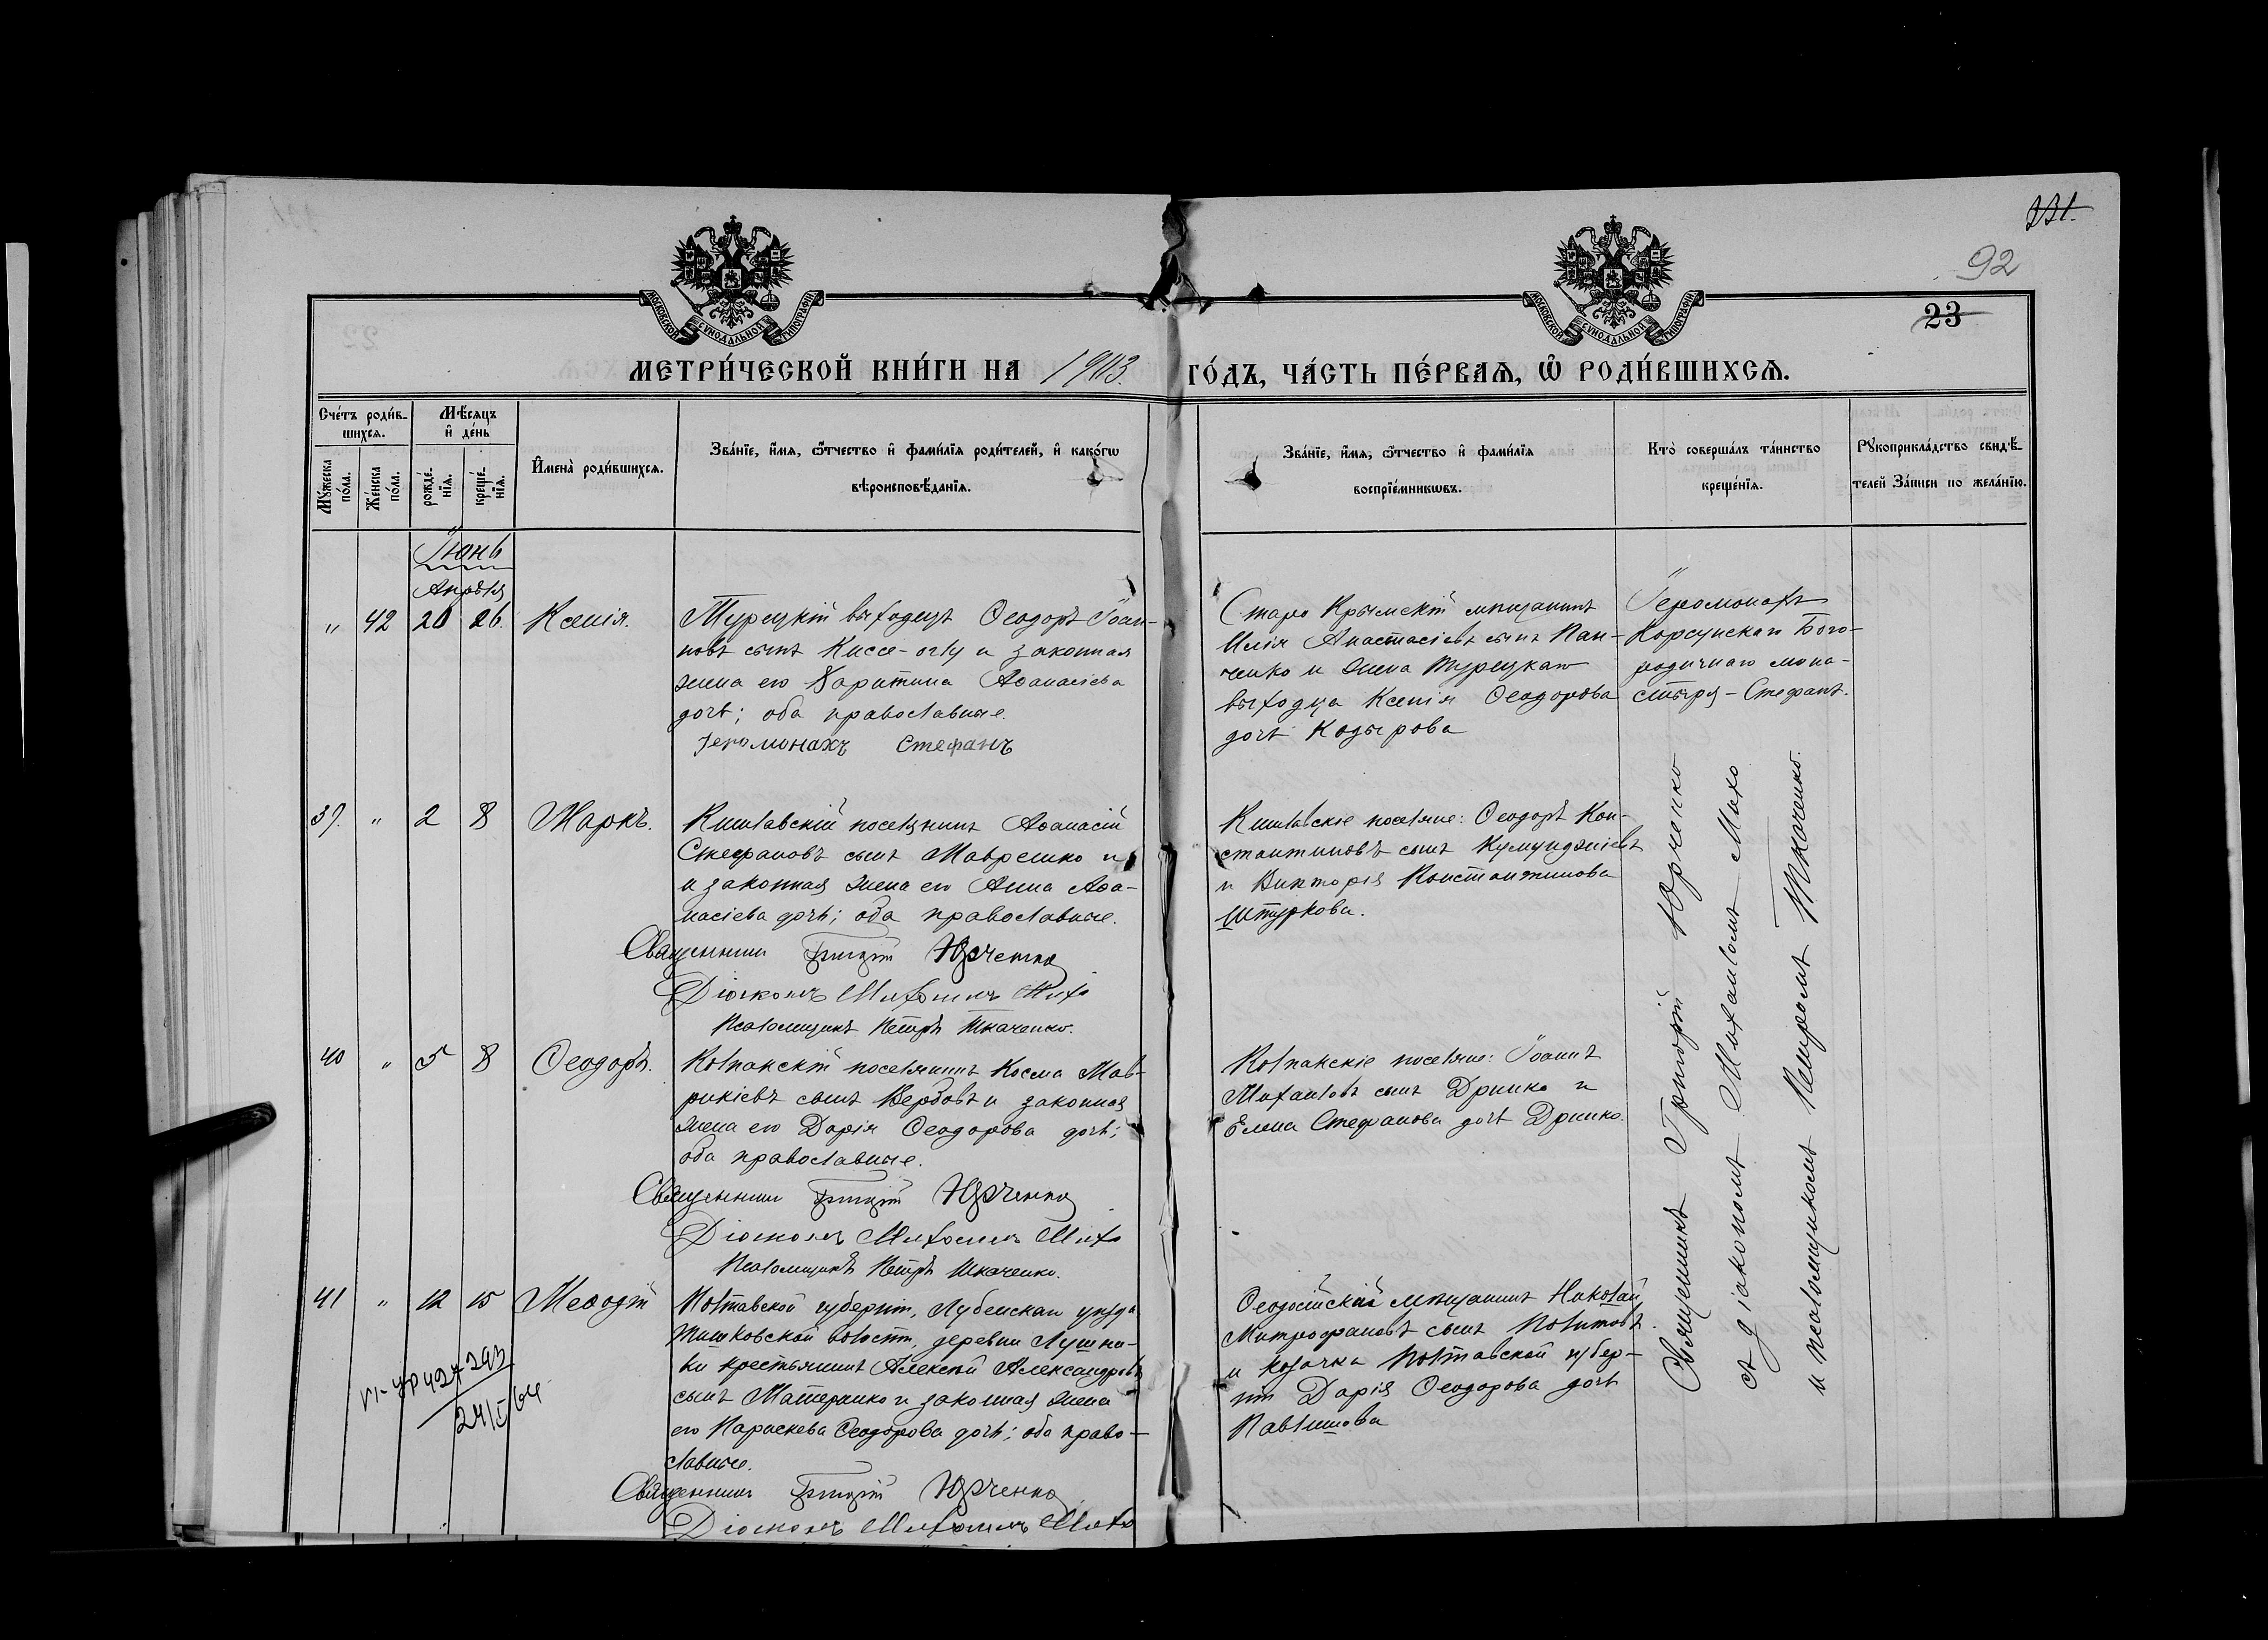 331.
92
23
МОСКОВСКОЙ СѴНОДАЛЬНОЙ ТИПОГРАФІИ
МОСКОВСКОЙ СѴНОДАЛЬНОЙ ТИПОГРАФІИ
МЕТРИ́ЧЕСКОЙ КНИ́ГИ НА 1903. ГО́ДЪ, ЧА́СТЬ ПЕ́РВАѦ, Ѽ РОДИ́ВШИХСѦ.
Сче́тъ роди́в-
шихсѧ.
Мѣ́сѧцъ
и҆ де́нь
Мꙋ́жеска по́ла.
Же́нска по́ла.
рожде́-
нїѧ.
креще́-
нїѧ.
И҆мена̀ роди́вшихсѧ.
Зва́нїе, и҆́мѧ, ѻ҆́тчество и҆ фами́лїѧ роди́телей, и҆ како́гѡ
вѣроисповѣ́данїѧ.
Зва́нїе, и҆́мѧ, ѻ҆́тчество и҆ фами́лїѧ
воспрїе́мникѡвъ.
Кто̀ соверша́лъ та́инство
креще́нїѧ.
Рꙋкоприкла́дство свидѣ́-
телей за́писи по жела́нїю.
Іюнь
Апрѣля
" 42 20 26. Ксенія.
Турецкій выходецъ Ѳеодоръ Іоан-
новъ сынъ Киссе-оглу и законная
жена его Харитина Аѳанасіева
дочь; оба православные.
Іеромонахъ Стефанъ
Старо Крымскій мѣщанинъ
Илія Анастасіевъ сынъ Пан-
ченко и жена турецкаго
выходца Ксенія Ѳеодорова
дочь Кодырова
Іеромонахъ
Корсунскаго Бого-
родичнаго мона-
стыря - Стефанъ.
39. " 2 8 Маркъ.
Кишлавскій поселянинъ Аѳанасій
Стефановъ сынъ Мавренко и
и законная жена его Анна Аѳа-
насіева дочь; оба православные.
Священникъ Григорій Юрченко
Діаконъ Михаилъ Михо
Псаломщикъ Петръ Ткаченко.
Кишлавскіе поселяне: Ѳеодоръ Кон-
стантиновъ сынъ Кумунджіевъ
и Викторія Константинова
Штуркова.
40 " 5 8 Ѳеодоръ.
Колпакскій поселянинъ Косма Мав-
рикіевъ сынъ Вербовъ и законная
жена его Дарія Ѳеодорова дочь;
оба православные.
Священникъ Григорій Юрченко
Діаконъ Михаилъ Михо
Псаломщикъ Петръ Ткаченко.
Колпакскіе поселяне: Іоаннъ
Михаиловъ сынъ Дринко и
Елена Стефанова дочь Дринко.
41 " 12 15 Меѳодій
Полтавской губерніи, Лубенскаго уѣзда
Тишковской волости, деревни Лушни-
ки крестьянинъ Алексѣй Александровъ
сынъ Материнко и законная жена
его Параскева Ѳеодорова дочь; оба право-
славные.
Священникъ Григорій Юрченко
Діаконъ Михаилъ Михо
Ѳеодосійскій мѣщанинъ Николай
Митрофановъ сынъ Политовъ
и козачка Полтавской губер-
ніи Дарія Ѳеодорова дочь
Павлишова
24/I 64
Священникъ Григорій Юрченко
съ діакономъ Михаиломъ Михо
и псаломщикомъ Петромъ Ткаченко.